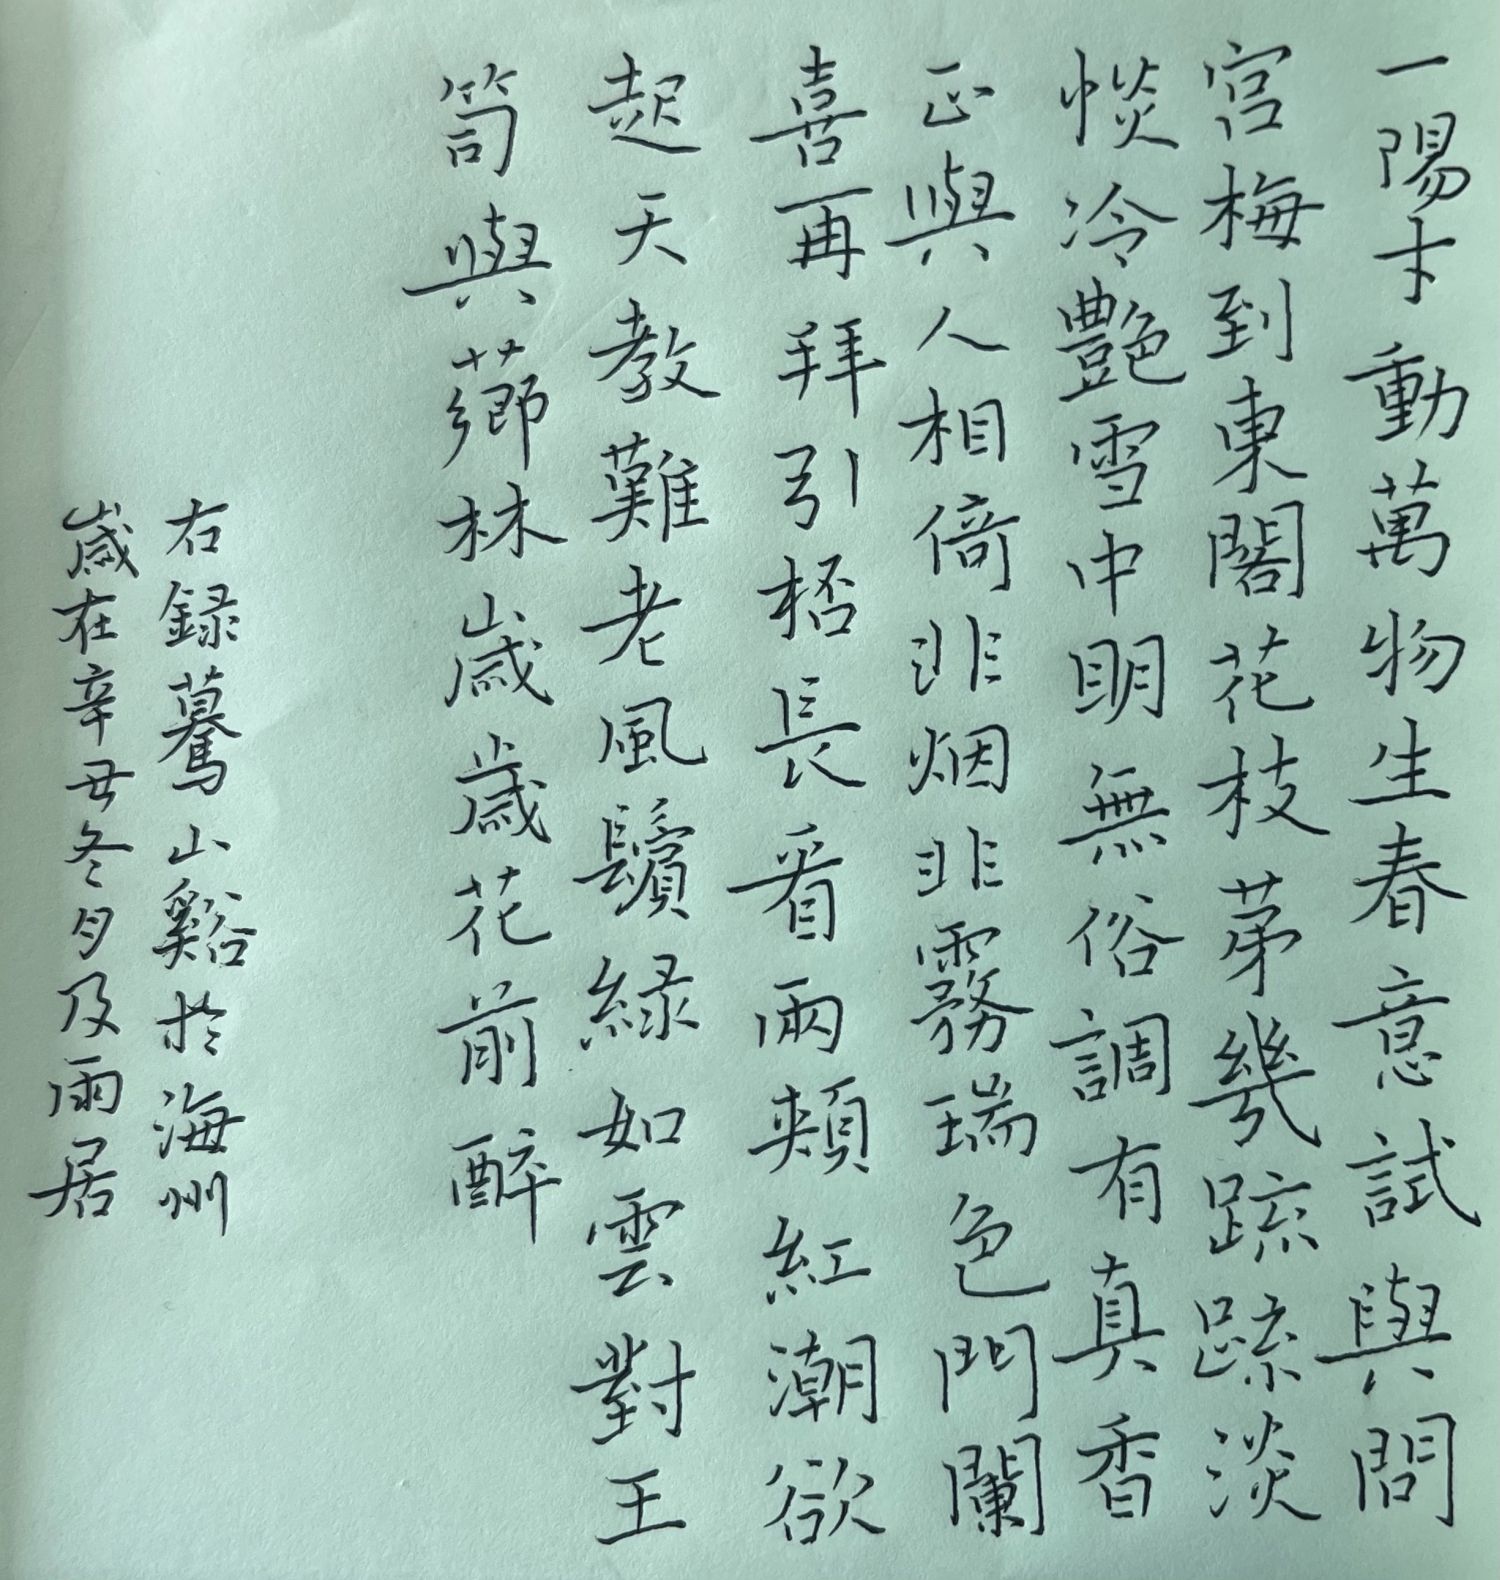 一陽才動萬物生春意試與問
宫梅到東閣花枝苐幾踈踈淡
惔冷艷雪中明無俗調有真香
正與人相倚非烟非霧瑞色門闌
喜再拜引桮長看兩頰紅潮欲
起天教難老風鬢緑如雲對王
笥與薌林歲歲花前醉
右録驀山谿於海州
歲在辛丑冬月及雨居